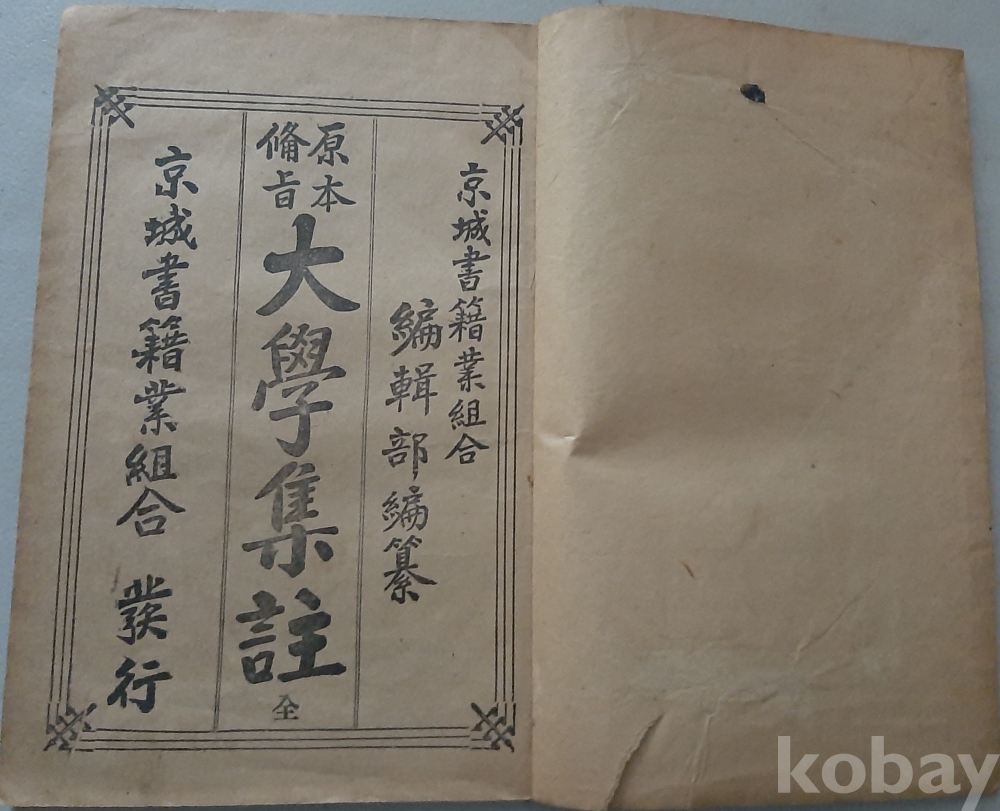 京城書籍業組合
編輯部編纂
原本
備旨
大學集註
全
京城書籍業組合 發行
kobay